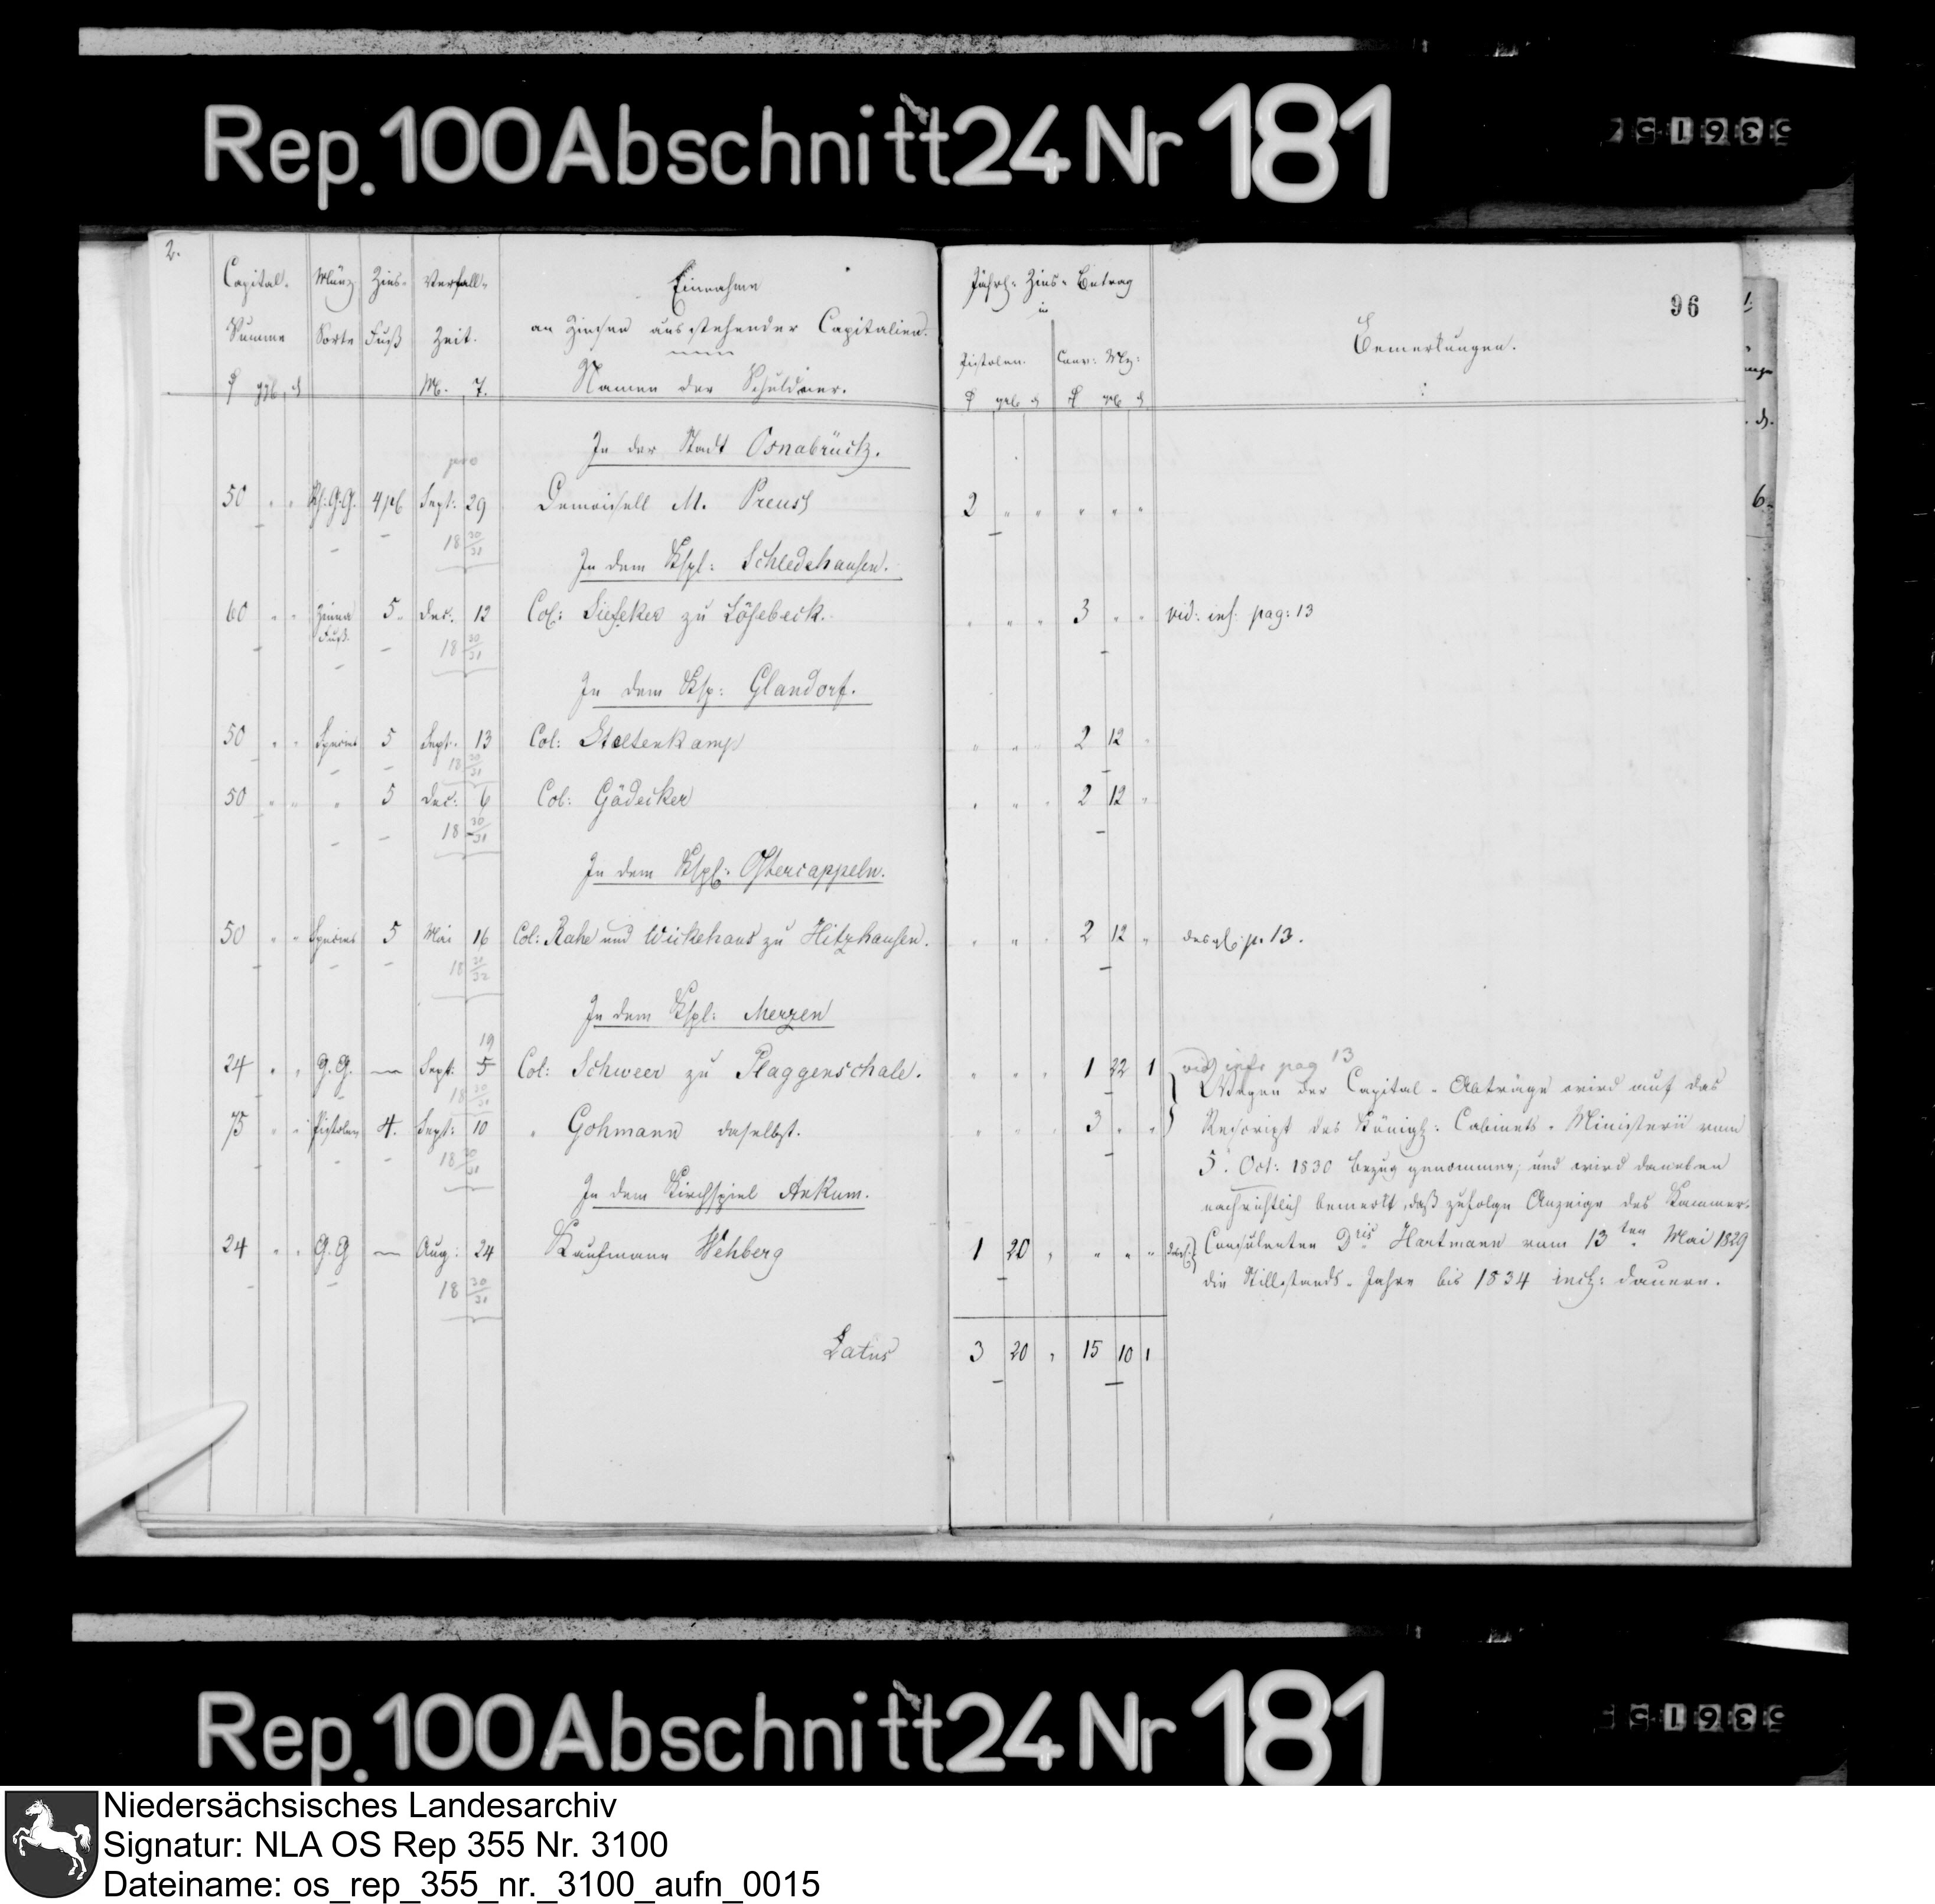 Rep. 100 Abschnitt 24 Nr 181
2.
Capital- Münz Zins- Verfall- Einnahme
Summe Sorte Fuß Zeit. an Zinsen ausstehender Capitalien.
M. T. Namen der Schuldner.
Jährl: Zins- Betrag
in
Pistolen. Conv: Mz:
Bemerkungen.
96
In der Stadt Osnabrück.
pro
50 " " G.G. 4 Sept: 29 Demoisell M. Preuss 2 " " " " "
18 30/31
In dem Kspl: Schledehausen.
60 " " 5 Dec: 12 Col: Siefeker zu Lösebeck. " " " 3 " " vid: inf: pag: 13
Fuß.
18 30/31
In dem Ksp: Glandorf.
50 " " 5 Sept: 13 Col: Stoltenkamp " " " 2 12 "
18 30/31
50 " " " 5 Dec: 6 Col: Gödecker " " " 2 12 "
18 30/31
In dem Kspl: Ostercappeln.
50 " " 5 Mai 16 Col: Rahe und Wirkehaus zu Hitzhausen. " " " 2 12 " desgl: p. 13.
18
In dem Kspl: Merzen
19
24 " " G.G. — Sept: 5 Col: Schweer zu Plaggenschale. " " " 1 22 1 vid infr pag 13
18 30/31
Wegen der Capital-Abträge wird auf das
75 " " Pistolen 4. Sept: 10 " Gohmann daselbst. " " " 3 " " Rescript des Königl: Cabinets-Ministerii vom
18 30/31
5. Oct: 1830 bezug genommen, und wird daneben
In dem Kirchspiel Ankum.
nachrichtlich bemerkt, daß zufolge Anzeige des Kammer-
24 " " G.G — Aug: 24 Kaufmann Wehberg 1 20 " " " " desgl: Consulenten Dris Hartmann vom 13ten Mai 1829
18 30/31
die Stillstands-Jahre bis 1834 incl: dauern.
Latus 3 20 " 15 10 1
Rep. 100 Abschnitt 24 Nr 181
Niedersächsisches Landesarchiv
Signatur: NLA OS Rep 355 Nr. 3100
Dateiname: os_rep_355_nr._3100_aufn_0015